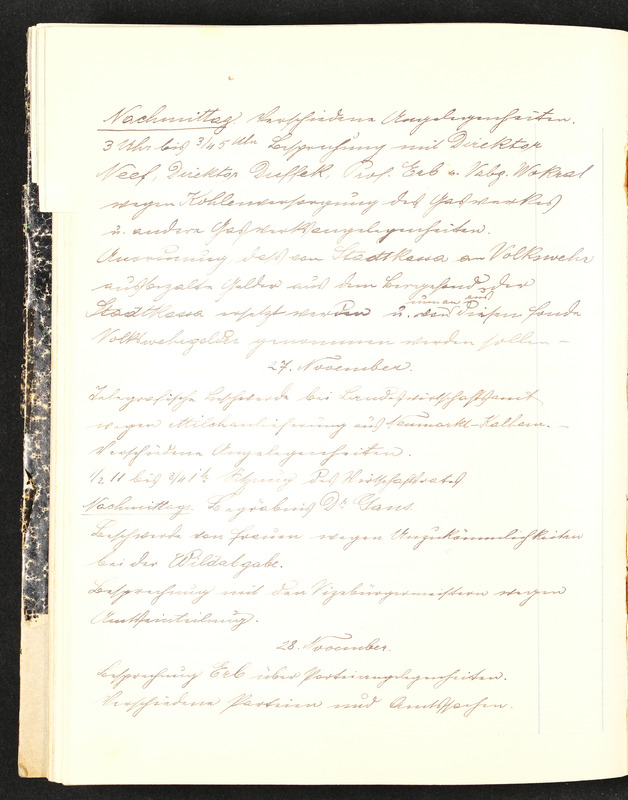 Nachmittag Verschiedene Angelegenheiten.
3 Uhr bis 3/4 5 Uhr Besprechung mit Direktor
Neef, Direktor Duffek, Prof. Erb u. Vabg. Wokral
wegen Kohlenversorgung des Gaswerkes
u. andere Gaswerksangelegenheiten.
Anordnung daß von Stadtkassa an Volkswehr
ausbezalte Gelder aus dem der
Stadtkassa ersetzt werden u. nunan aus diesem Fonde
Volkswehrgelder genommen werden sollen –
27. November.
Telegrafische Beschwerde bei Landeswirtschaftsamt
wegen Milchanlieferung aus Neumarkt-Kallham. –
Verschiedene Angelegenheiten.
1/2 11 bis 3/4 1 h Sitzung des Wirtschaftsrates
Nachmittag. Begräbnis Dr. Gans.
Beschwerde von Frauen wegen Unzukömmlichkeiten
bei der Wildabgabe.
Besprechung mit den Vizebürgermeistern wegen
Amtseinteilung.
28. November.
Besprechung Erb über Parteiangelegenheiten.
Verschiedene Parteien und Amtssachen.